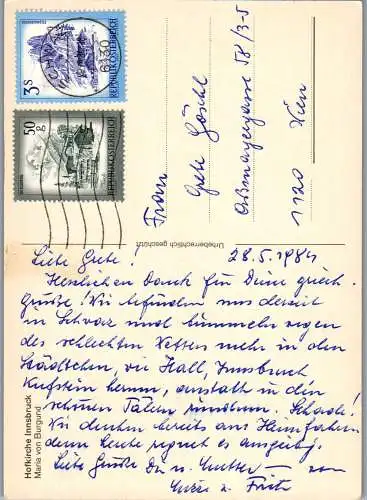 3 S
REPUBLIK ÖSTERREICH
50 g
REPUBLIK ÖSTERREICH
6130
Frau
Grete Göschl
Ostmayergasse 58/3-5
1120 Wien
Urheberrechtlich geschützt
Hofkirche Innsbruck
Maria von Burgund
28.5.1984
Liebe Grete!
Herzlichen Dank für Deine griech.
Grüße! Wir befinden uns derzeit
in Schwaz und bummeln wegen
des schlechten Wetters mehr in den
Städtchen, wie Hall, Innsbruck
Kufstein herum, anstatt in den
schönen Tälern rundum. Schade!
Wir denken bereits ans Heimfahren
denn heute regnet es ausgiebig.
Liebe Grüße Dir u. Mutter von
u. Fritz